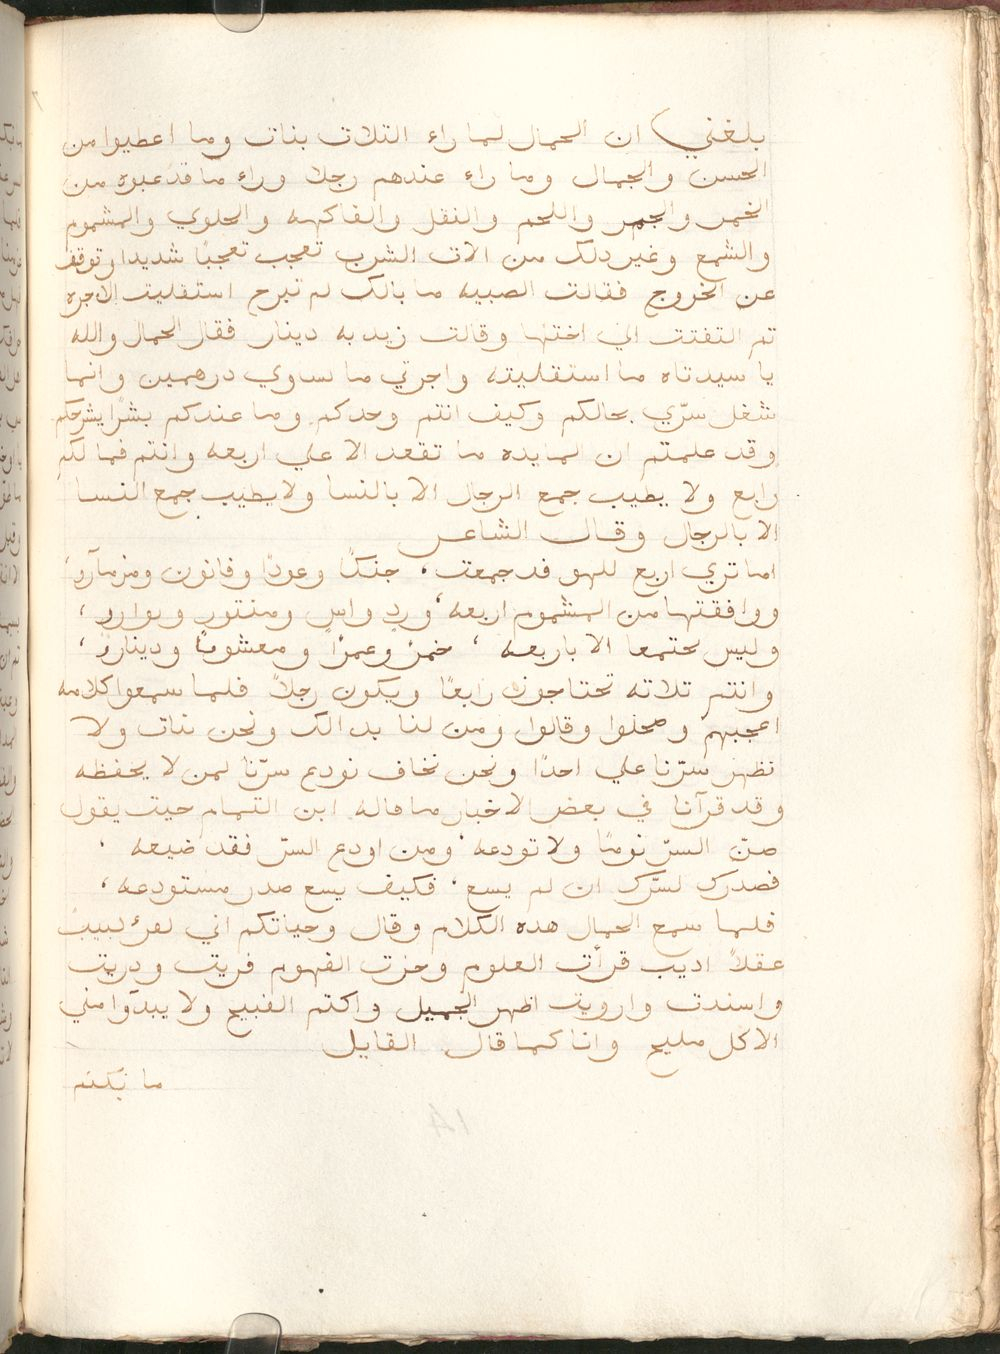 بلغني ان الحمال لما راء التلات بنات وما اعطيوا من
الحسن والجمال وما راء عندهم رجلا وراء ما قد عبوه من
الخمر والجمر واللحم والنقل والفاكهه والحلوي والمشموم
والشمع وغير دلك من الات الشرب تعجب تعجبًا شديدا وتوقف
عن الخروج فقالت الصبيه ما بالك لم تبرح استقليت الاجره
تم التفتت الي اختها وقالت زيديه دينار فقال الحمال والله
يا سيدتاه ما استقليته واجرتي ما تساوي درهمين وانما
شغل سرّي بحالكم وكيف انتم وحدكم وما عندكم بشرًا يشرحكم
وقد علمتم ان لمايده ما تقعد الا علي اربعه وانتم فما لكم
رابع ولا يطيب جمع الرجال الا بالنسا ولا يطيب جمع النسا
الا بالرجال وقال الشاعر
اما تري اربع للهو قد جمعت، جنكًا وعودًا وقانون ومزمارو،
ووافقتها من المشموم اربعه، وردٍ واسٍ ومنتور ونوارو،
وليس يجتمعا الا باربعه، خمرٌ وعمرًا ومعشوقًا ودينارو،
وانتم تلاته تحتاجون رابعًا ويكون رجلاً فلما سمعوا كلامه
اعجبهم وضحكوا وقالوا ومن لنا بدالك ونحن بنات ولا
نظهر سرّنا علي احدًا ونحن نخاف نودع سرّنا لمن لا يحفظه
وقد قرآنا في بعض الاخبار ما قاله ابن التمام حيت يقول
صنّ السرّ نومًا ولا تودعه، ومن اودع السرّ فقد ضيعه،
فصدرك لسرّك ان لم يسع، فكيف يسع صدر مستودعه،
فلما سمع الحمال هده الكلام وقال وحياتكم اني لمرء لبيبٌ
عقلاً اديب قرأت العلوم وحزت الفهوم قريت ودريت
واسندت وارويت اظهر الجميل واكتم القبيح ولا يبدوا مني
الا كل مليح وانا كما قال القايل
ما يكتم
14